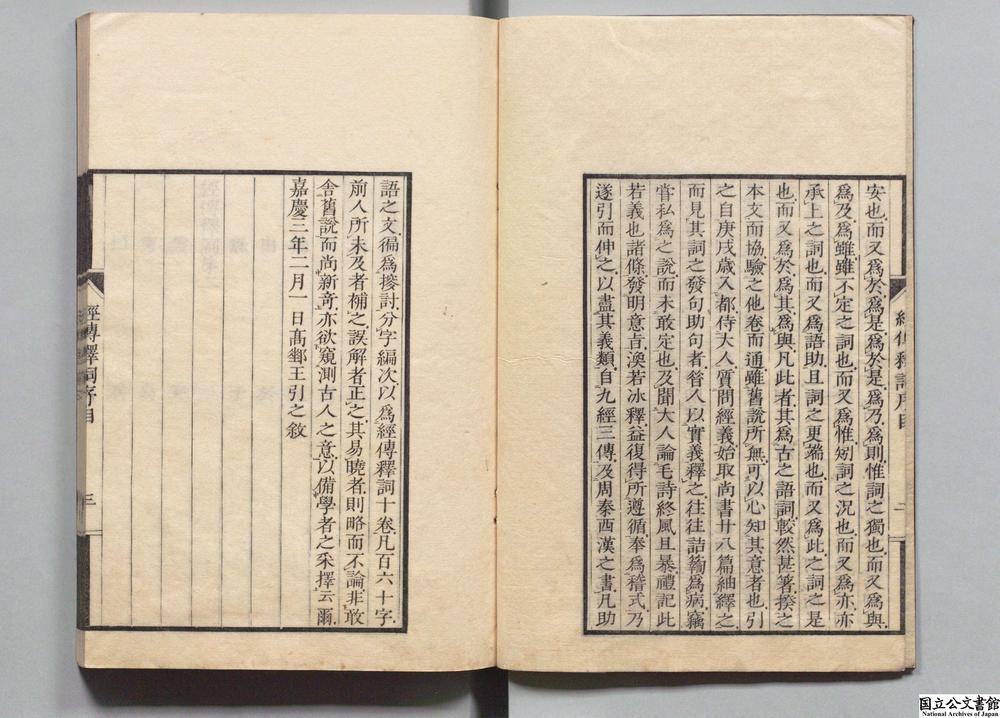 安也而又爲於爲是爲於是爲乃爲則惟詞之獨也而又爲與
爲及爲雖雖不定之詞也而又爲惟矧詞之況也而又爲亦亦
承上之詞也而又爲語助且詞之更端也而又爲此之詞之是
也而又爲於爲其爲與凡此者其爲古之語詞較然甚箸揆之
本文而協驗之他卷而通雖舊說所無可以心知其意者也引
之自庚戌歲入都侍大人質問經義始取尚書廿八篇紬繹之
而見其詞之發句助句者昔人以實義釋之往往詰𥷚爲病竊
嘗私爲之說而未敢定也及聞大人論毛詩終風且暴禮記此
若義也諸條發明意恉渙若冰釋益復得所遵循奉爲稽式乃
遂引而伸之以盡其義類自九經三傳及周秦西漢之書凡助
語之文徧爲搜討分字編次以爲經傳釋詞十卷凡百六十字
前人所未及者補之誤解者正之其易曉者則略而不論非敢
舍舊說而尚新奇亦欲窺測古人之意以備學者之采擇云爾
嘉慶三年二月一日高郵王引之敘
經傳釋詞序目
三
国立公文書館
National Archives of Japan